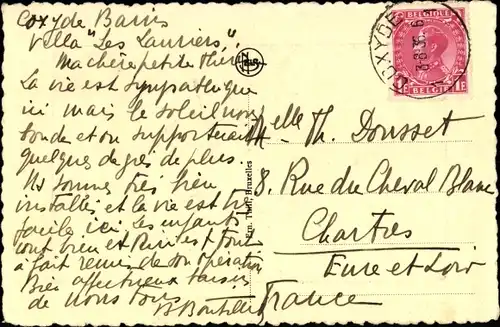 Coxyde Bains
Villa "Les Lauriers".
Ma chère petite Thérèse
La vie est sympathique
ici mais le soleil nous
boude et on supporterait
quelques degrés de plus.
Ns sommes très bien
installés et la vie est très
facile ici. Les enfants
vont bien et Pierrot est tout
à fait remis de son opération
Bien affectueux baisers
de nous tous
COXYDE
BELGIQUE
1F
BELGIË
Ern. Thill, Bruxelles
Melle Th. Dousset
8. Rue du Cheval Blanc
Chartres
Eure et Loir
France